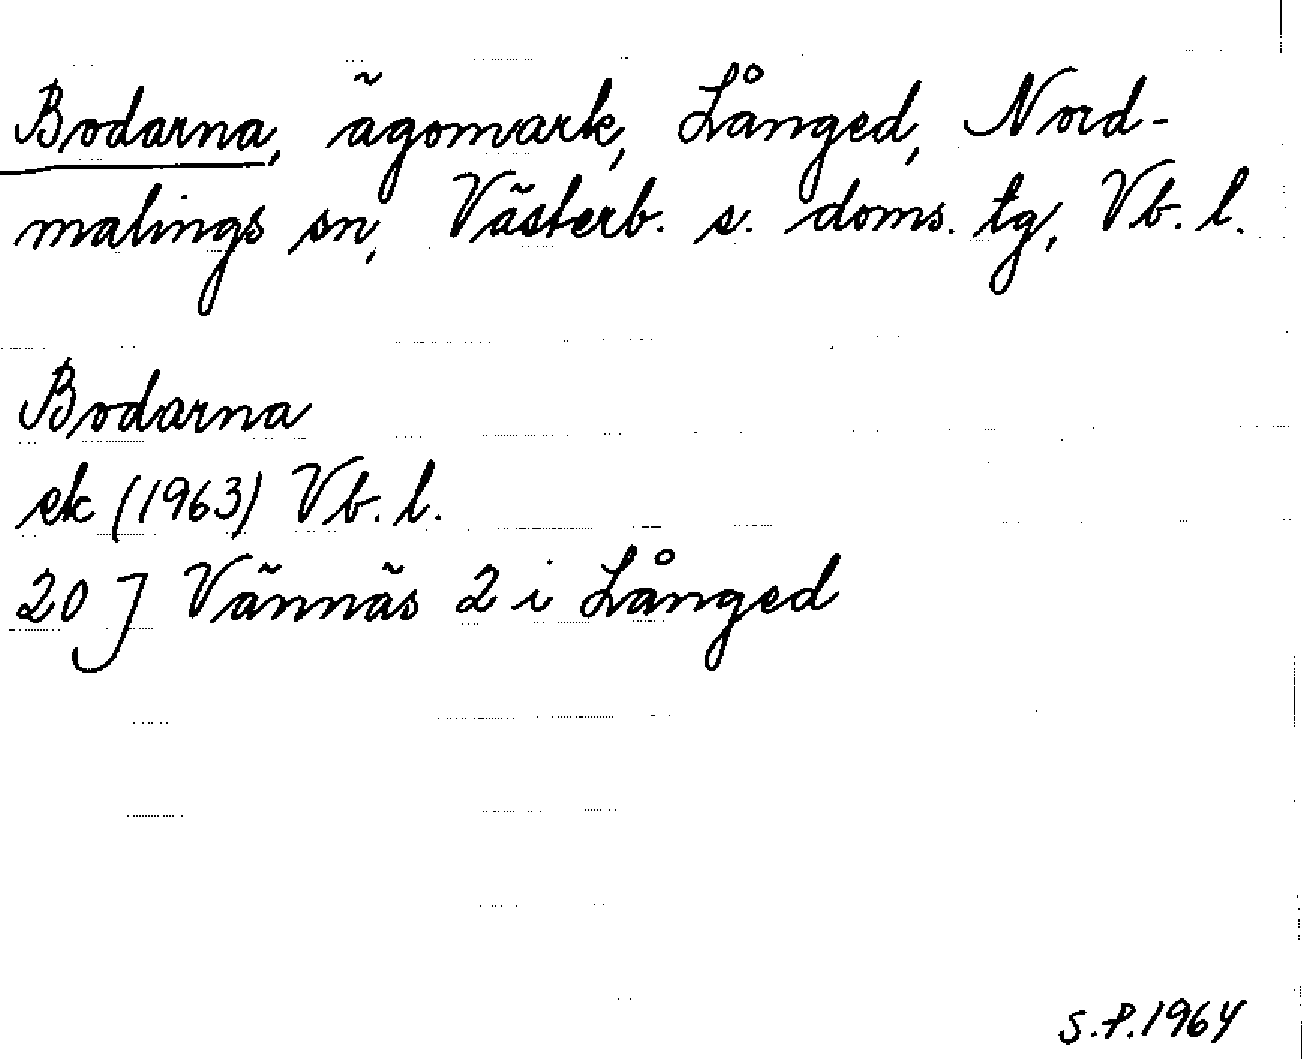 Bodarna, ägomark, Långed, Nord-
malings sn, Västerb. s. doms. tg, Vb. l.
Bodarna
ek (1963) Vb. l.
20 J Vännäs 2 i Långed
S.P. 1964